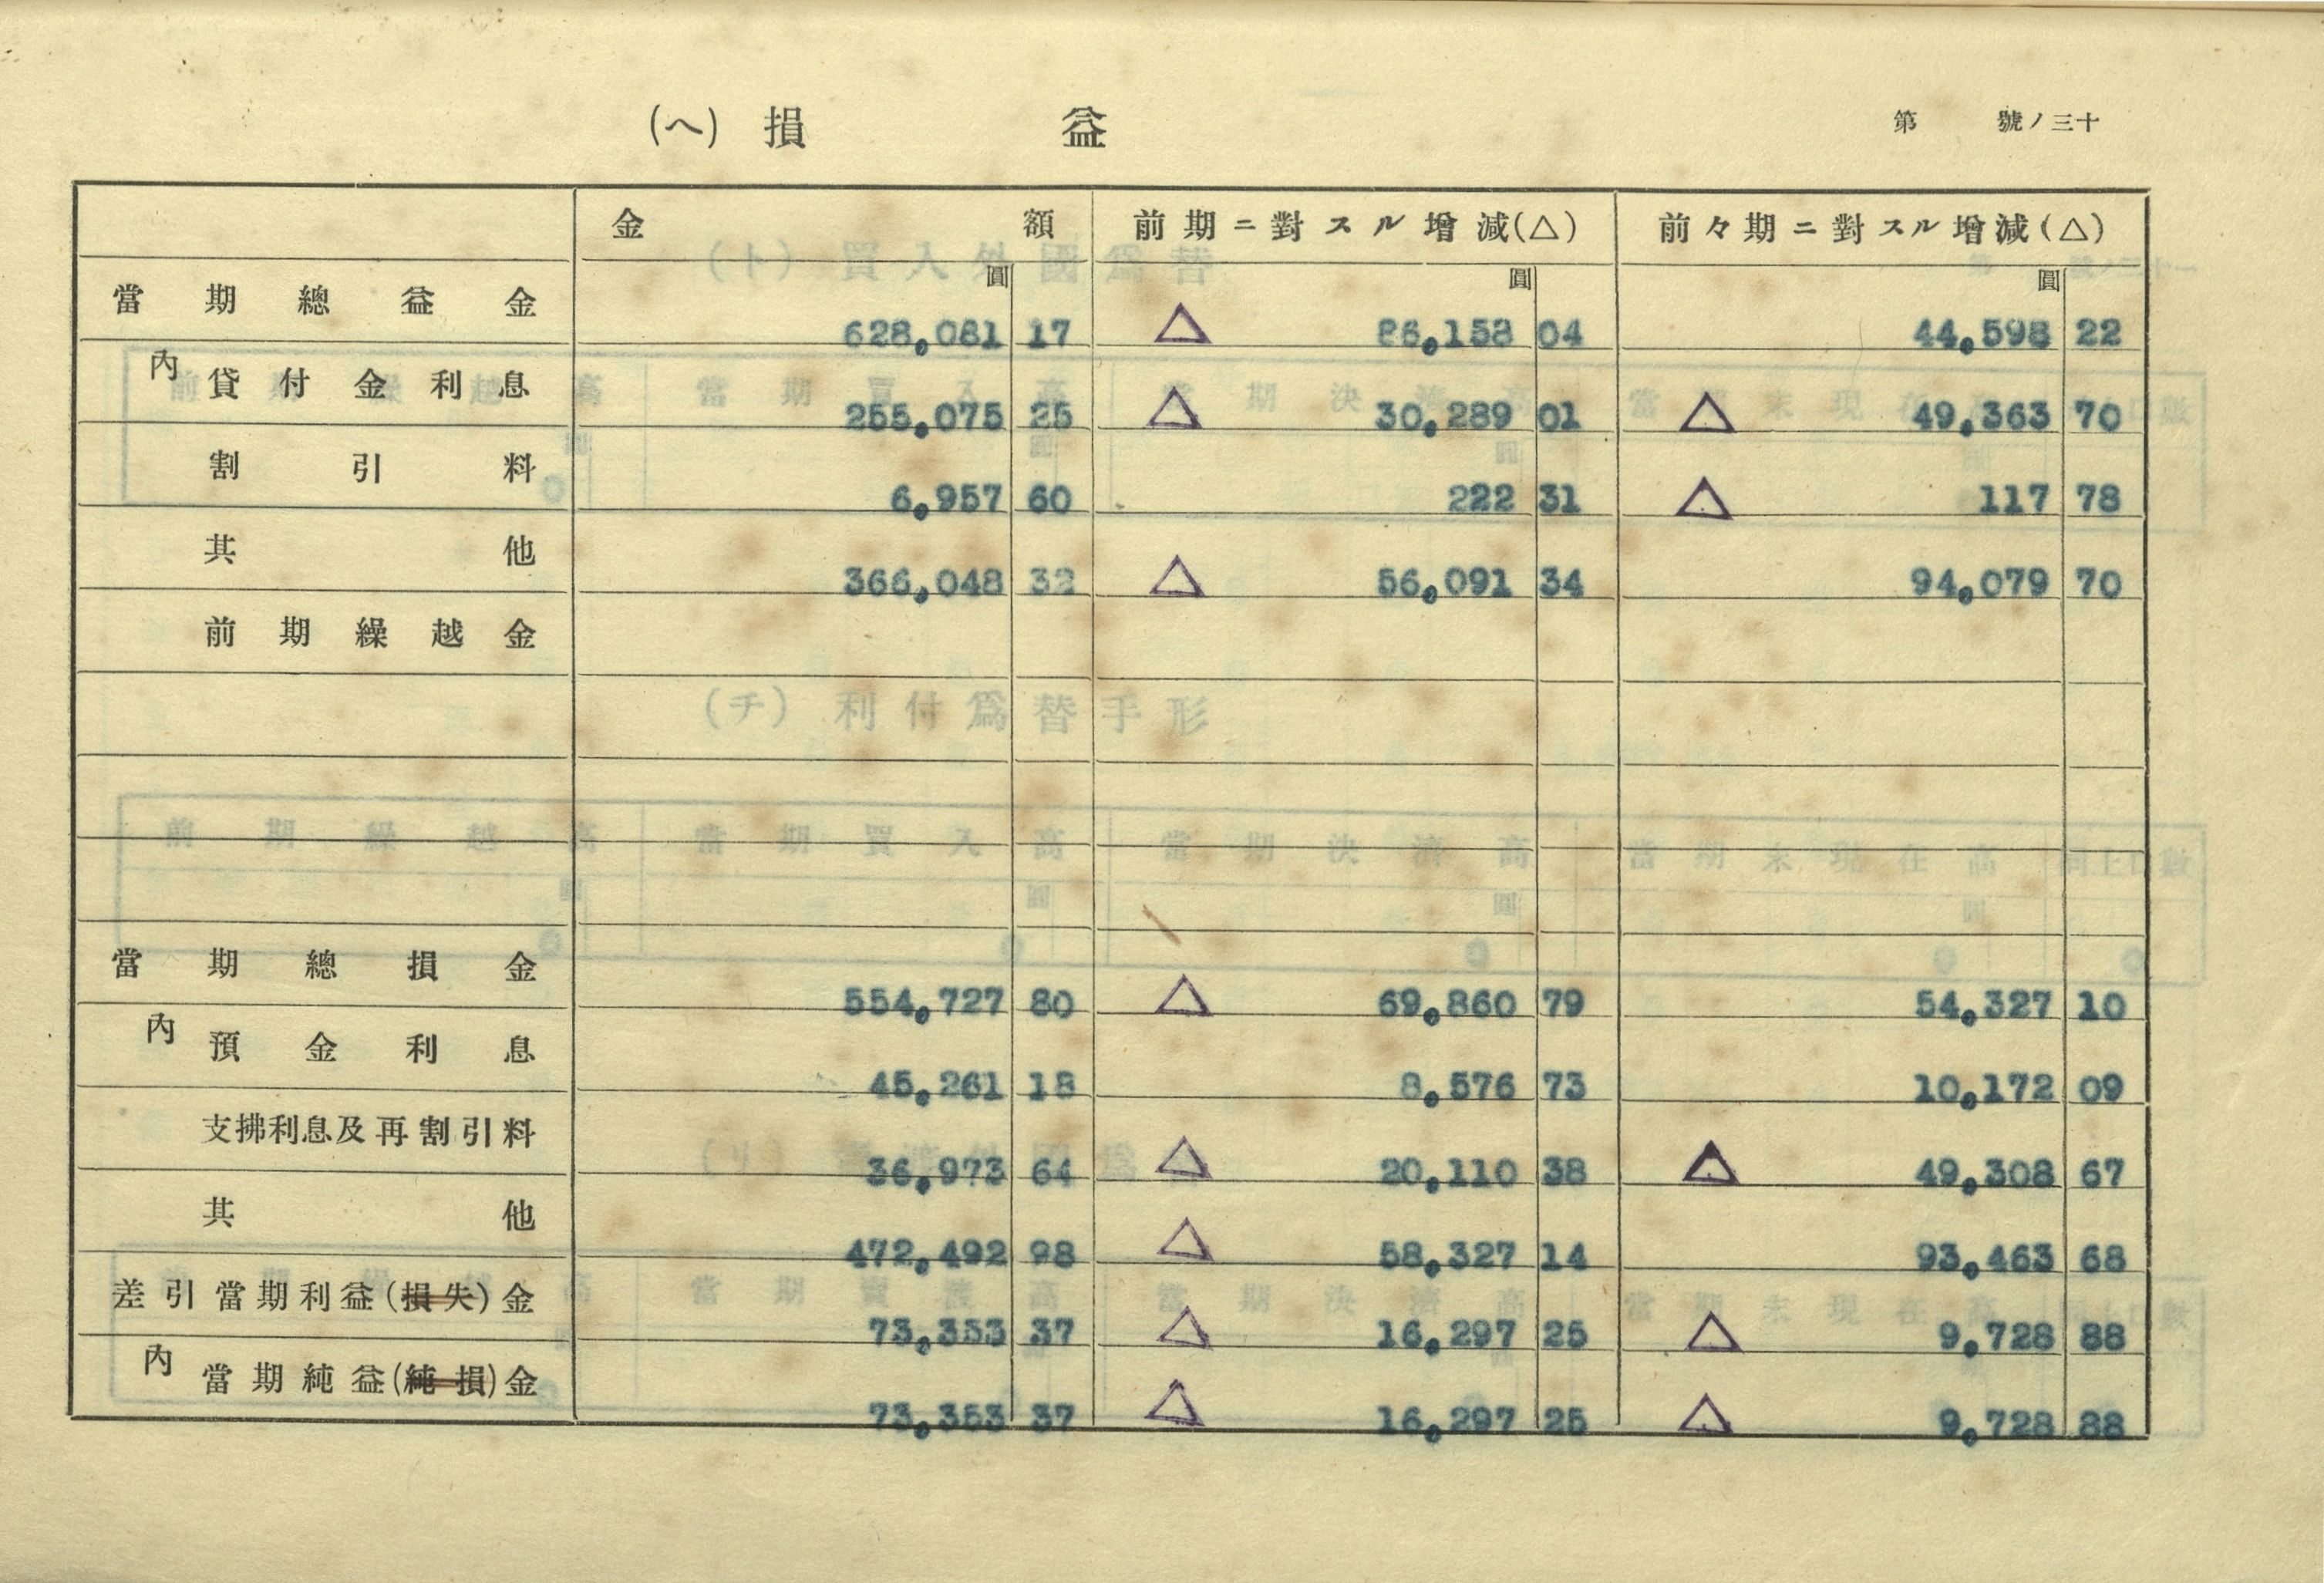 (ヘ) 損 益
第 號ノ三十
金 額 前期ニ對スル增減(△) 前々期ニ對スル增減(△)
圓 圓 圓
當期總益金 628,081 17 △ 86,158 04 44,598 22
內 貸付金利息 255,075 25 △ 30,289 01 △ 49,363 70
割引料 6,957 60 222 31 △ 117 78
其他 366,048 32 △ 56,091 34 94,079 70
前期繰越金
當期總損金 554,727 80 △ 69,860 79 54,327 10
內 預金利息 45,261 18 8,576 73 10,172 09
支拂利息及再割引料 36,973 64 △ 20,110 38 △ 49,308 67
其他 472,492 98 △ 58,327 14 93,463 68
差引當期利益(損失)金 73,353 37 △ 16,297 25 △ 9,728 88
內 當期純益(純損)金 73,353 37 △ 16,297 25 △ 9,728 88